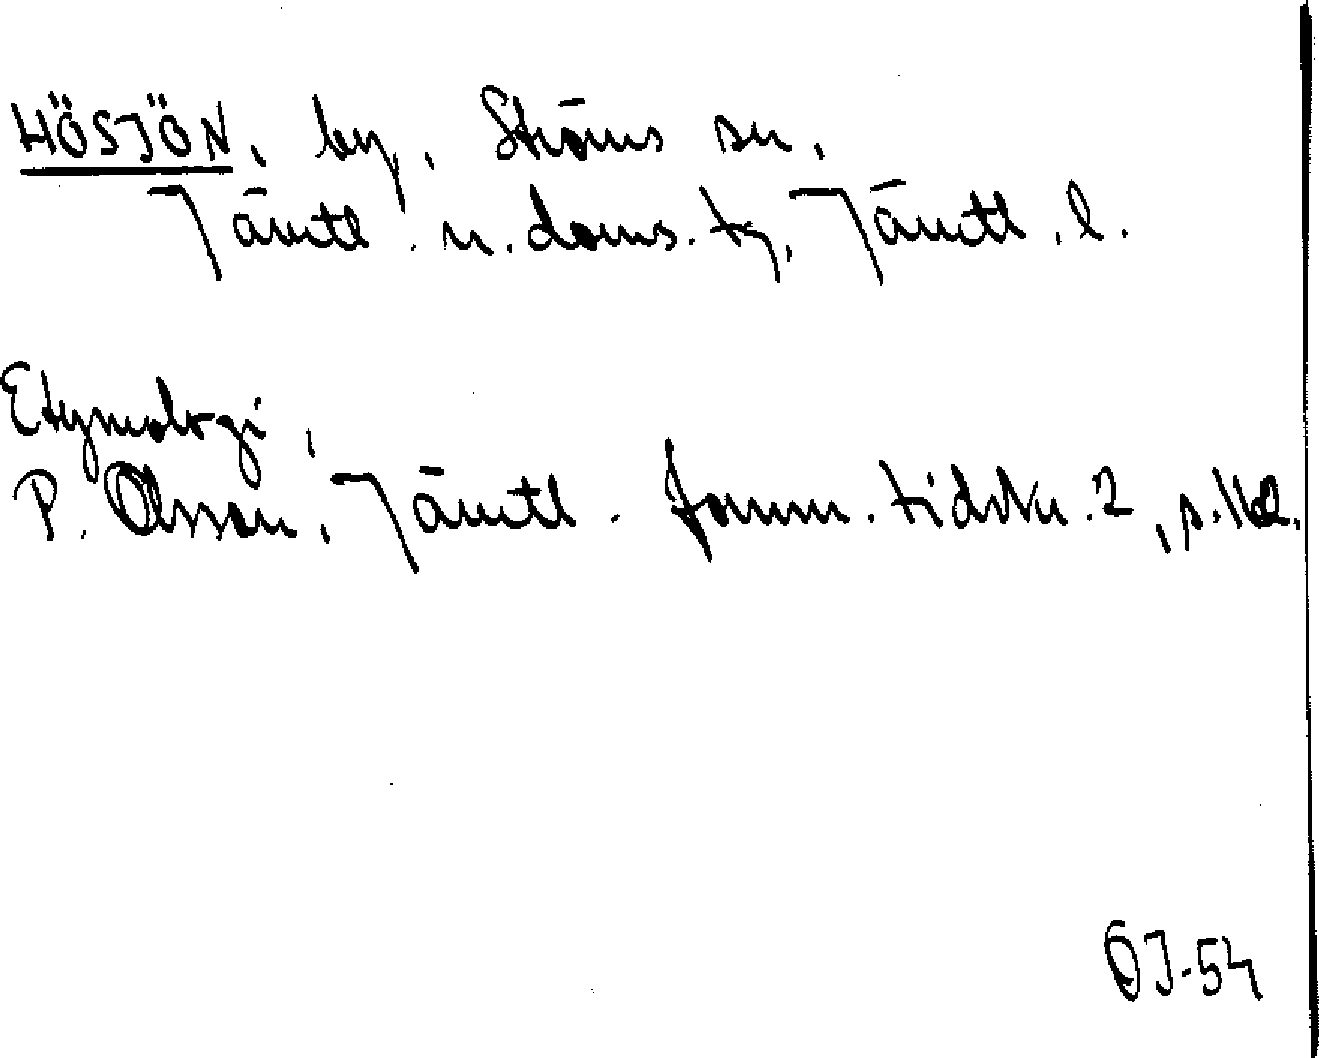 HÖSJÖN, by, Ströms sn,
Jämtl. n. doms. tg, Jämtl. l.
Etymologi,
P. Olsson, Jämtl. fornm. tidskr. 2, s. 162.
ÖJ-54